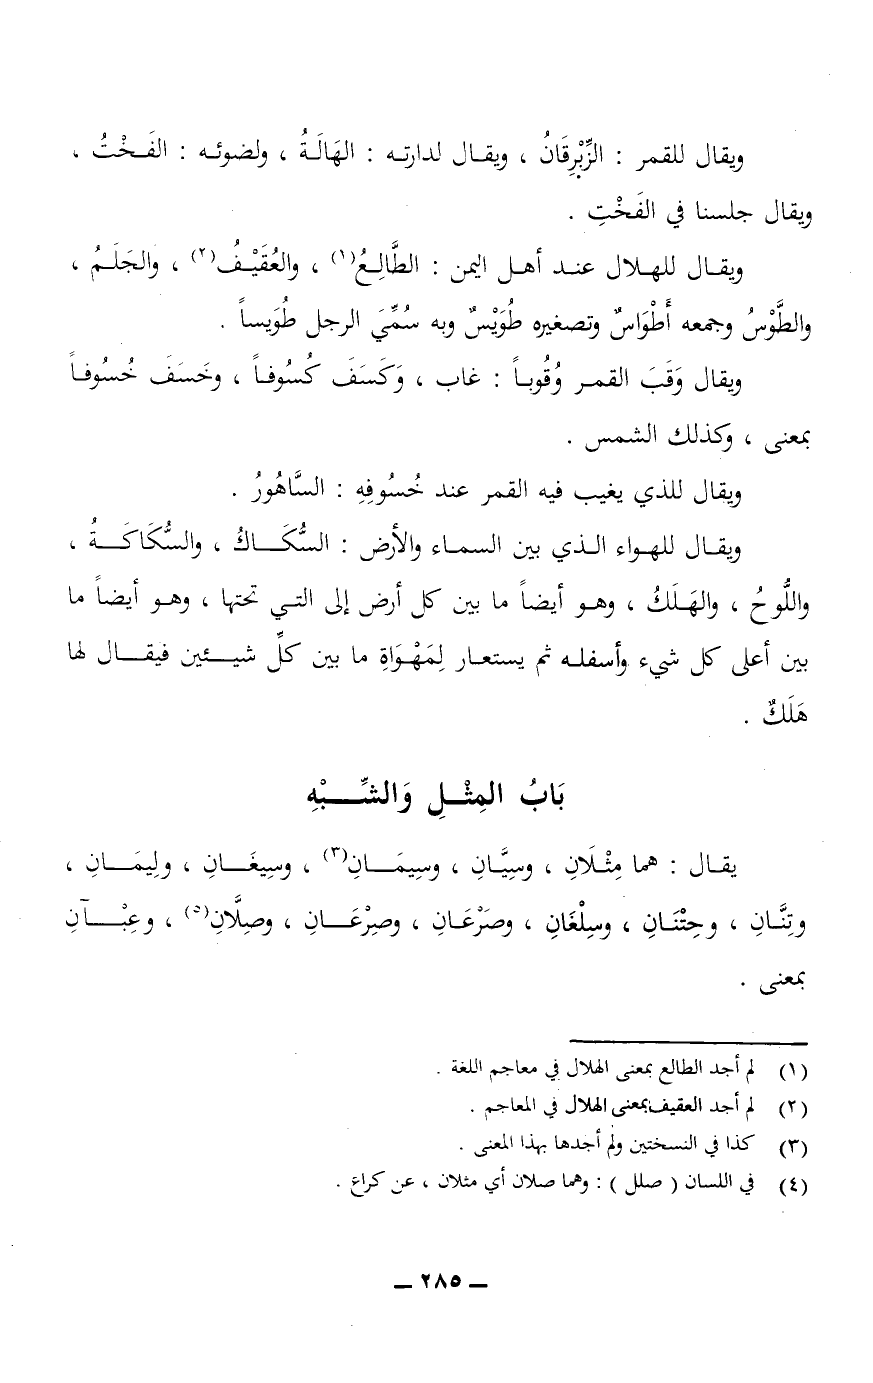 ويقال للقمر : الزِّبْرِقَانُ ، ويقال لدارته : الهَالَةُ ، ولضوئه : الفَخْتُ ،
ويقال جلسنا في الفَخْتِ .
ويقال للهلال عند أهل اليمن : الطَّالِعُ(١) ، والعُقَيْفُ(٢) ، والجَلَمُ ،
والطَّوْسُ وجمعه أَطْوَاسٌ وتصغيره طُوَيْسٌ وبه سُمِّيَ الرجل طُوَيساً .
ويقال وَقَبَ القمر وُقُوباً : غاب ، وَكَسَفَ كُسُوفاً ، وخَسَفَ خُسُوفاً
بمعنى ، وكذلك الشمس .
ويقال للذي يغيب فيه القمر عند خُسُوفِهِ : السَّاهُورُ .
ويقال للهواء الذي بين السماء والأرض : السُّكَاكُ ، والسُّكَاكَةُ ،
واللُّوحُ ، والهَلَكُ ، وهو أيضاً ما بين كل أرض إلى التي تحتها ، وهو أيضاً ما
بين أعلى كل شيء وأسفله ثم يستعار لِمَهْوَاةِ ما بين كلِّ شيئين فيقال لها
هَلَكٌ .
بَابُ المِثْلِ وَالشِّبْهِ
يقال : هما مِثْلَانِ ، وسِيَّانِ ، وسِيمَانِ(٣) ، وسِيغَانِ ، ولِيمَانِ ،
وتِنَّانِ ، وحِتْنَانِ ، وسِلْغَانِ ، وصَرْعَانِ ، وصِرْعَانِ ، وصِلَّانِ(٥) ، وعِبْآنِ
بمعنى .
(١) لم أجد الطالع بمعنى الهلال في معاجم اللغة .
(٢) لم أجد العقيف بمعنى الهلال في المعاجم .
(٣) كذا في النسختين ولم أجدها بهذا المعنى .
(٤) في اللسان ( صلل ) : وهما صلان أي مثلان ، عن كراع .
— ٢٨٥ —